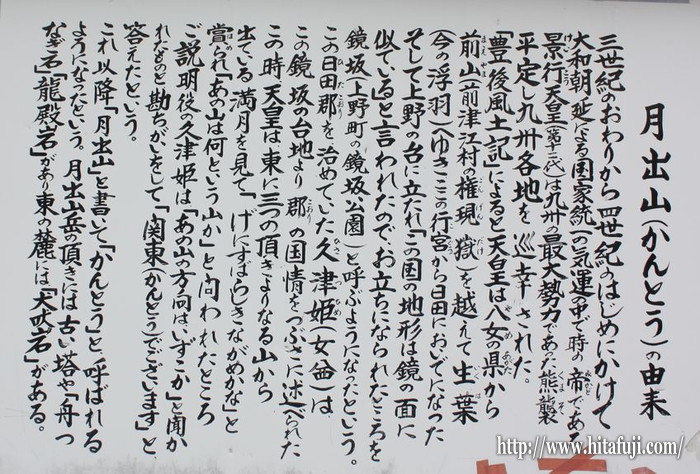 月出山(かんとう)の由来
三世紀のおわりから四世紀のはじめにかけて
大和朝廷による国家統一の気運の中で時の帝である
景行天皇(第十二代)は九州の最大勢力であった熊襲を
平定し九州各地を巡幸された。
「豊後風土記」によると天皇は八女の県から
前山(前津江村の権現嶽)を越えて生葉
(今の浮羽)へゆきここの行宮から日田においでになった
そして上野の台に立たれ「この国の地形は鏡の面に
似ている」と言われたので、お立ちになられたところを
鏡坂(上野町の鏡坂公園)と呼ぶようになったという。
この日田郡を治めていた久津姫(女酋)は
この鏡坂の台地より郡の国情をつぶさに述べられた
この時天皇は東に三つの頂きよりなる山から
出ている満月を見て「げにすばらしきながめかな」と
賞られ「あの山は何という山か」と問われたところ
ご説明役の久津姫は「あの山の方向は、いずこか」と聞か
れたものと勘ちがいをして「関東(かんとう)でございます」と
答えたという。
これ以降「月出山」と書いて「かんとう」と呼ばれる
ようになったという。月出山岳の頂きには古い塔や「舟つ
なぎ石」「龍殿岩」があり東の麓には「犬吠岩」がある。
http://www.hitafuji.com/